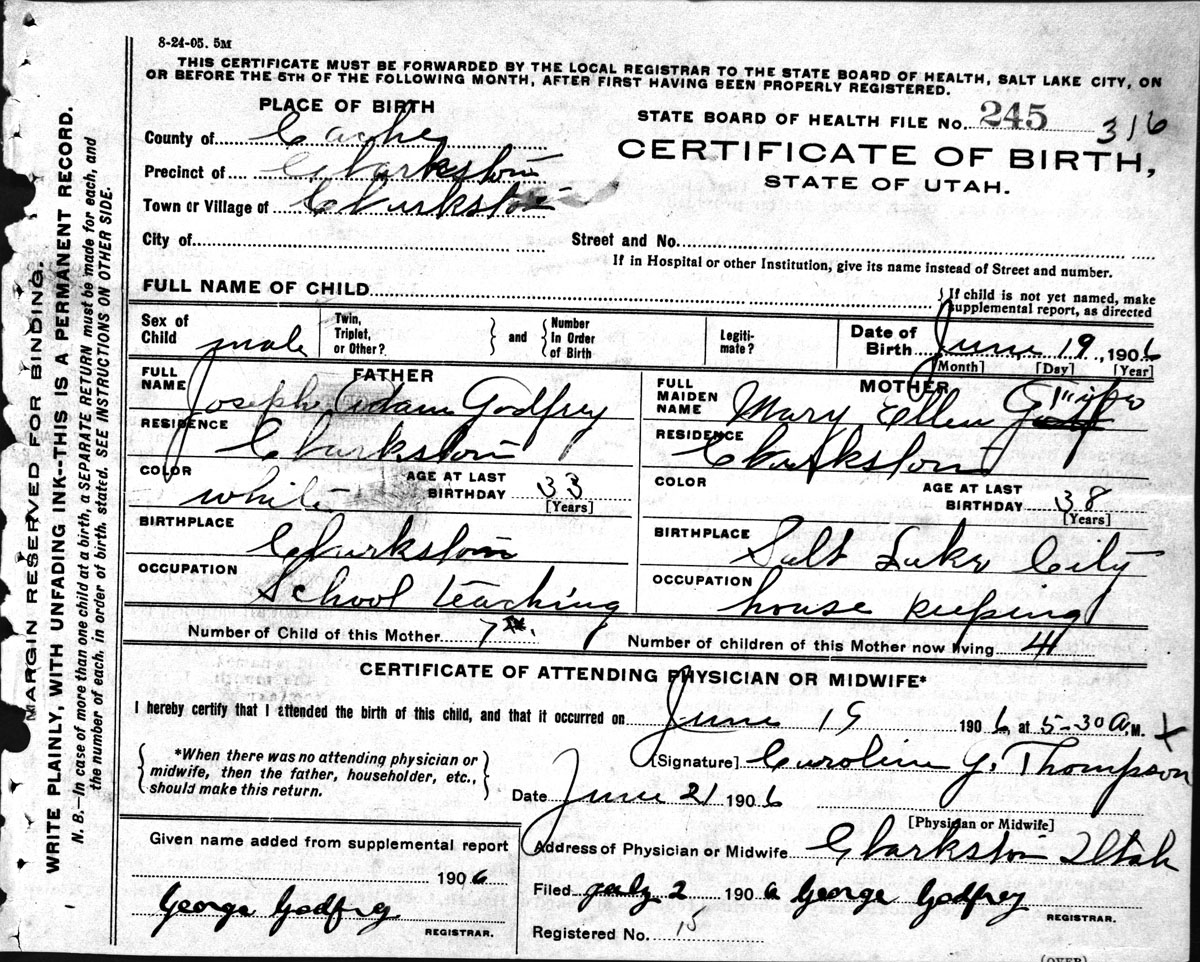 8-24-05. 5M
THIS CERTIFICATE MUST BE FORWARDED BY THE LOCAL REGISTRAR TO THE STATE BOARD OF HEALTH, SALT LAKE CITY, ON
OR BEFORE THE 5TH OF THE FOLLOWING MONTH, AFTER FIRST HAVING BEEN PROPERLY REGISTERED.
MARGIN RESERVED FOR BINDING.
WRITE PLAINLY, WITH UNFADING INK--THIS IS A PERMANENT RECORD.
N. B.—In case of more than one child at a birth, a SEPARATE RETURN must be made for each, and
the number of each, in order of birth, stated. SEE INSTRUCTIONS ON OTHER SIDE.
PLACE OF BIRTH
County of Cache
Precinct of Clarkston
Town or Village of Clarkston
STATE BOARD OF HEALTH FILE No. 245 316
CERTIFICATE OF BIRTH,
STATE OF UTAH.
City of Street and No.
If in Hospital or other Institution, give its name instead of Street and number.
FULL NAME OF CHILD { If child is not yet named, make
supplemental report, as directed
Sex of
Child male
Twin,
Triplet,
or Other? } and { Number
In Order
of Birth
Legiti-
mate?
Date of
Birth June 19, 1906
[Month] [Day] [Year]
FATHER
FULL
NAME Joseph Adam Godfrey
RESIDENCE Clarkston
COLOR white AGE AT LAST
BIRTHDAY 33
[Years]
BIRTHPLACE Clarkston
OCCUPATION School teaching
MOTHER
FULL
MAIDEN
NAME Mary Ellen
RESIDENCE Clarkston
COLOR AGE AT LAST
BIRTHDAY 38
[Years]
BIRTHPLACE Salt Lake City
OCCUPATION house keeping
Number of Child of this Mother 7th. Number of children of this Mother now living 4
CERTIFICATE OF ATTENDING PHYSICIAN OR MIDWIFE*
I hereby certify that I attended the birth of this child, and that it occurred on June 19 1906, at 5-30 A.M. X
{ *When there was no attending physician or
midwife, then the father, householder, etc.,
should make this return. }
[Signature] Caroline J. Thompson
Date June 21 1906
[Physician or Midwife]
Address of Physician or Midwife Clarkston Utah
Given name added from supplemental report
1906
George Godfrey
REGISTRAR.
Filed July 2 1906 George Godfrey
REGISTRAR.
Registered No. 15
(OVER)